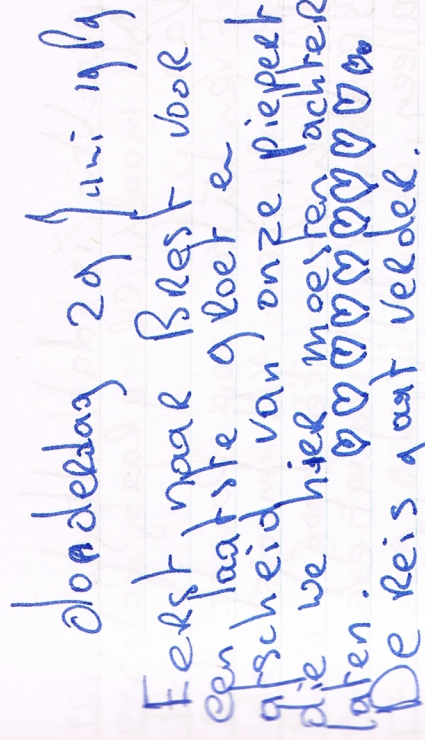 donderdag 29 juni 1989
Eerst naar Brest voor
een laatste groet en
afscheid van onze Piepert
die we hier moesten achter
laten. ♡♡♡♡♡♡♡♡♡♡
De reis gaat verder.